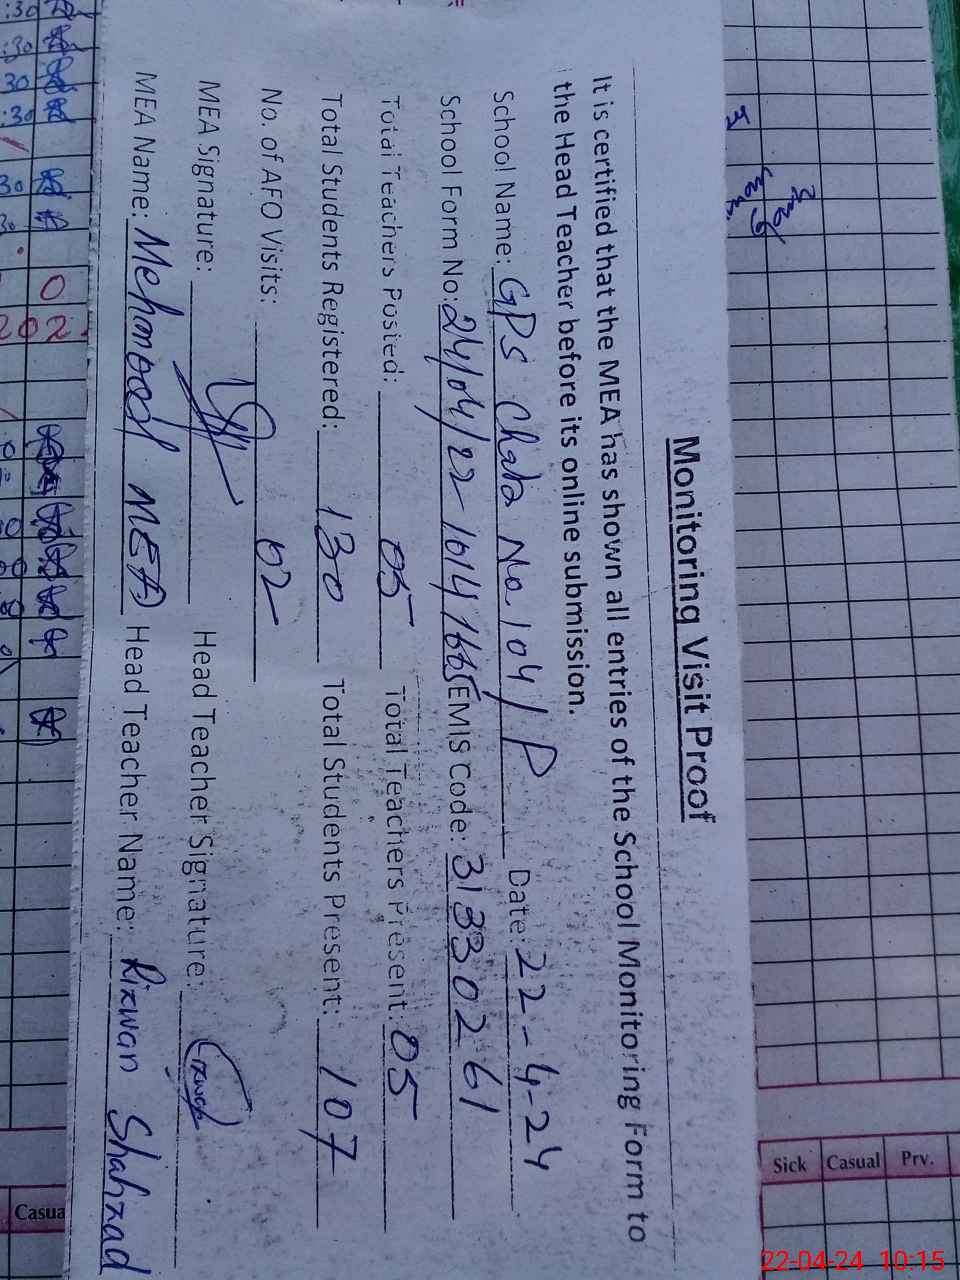 Monitoring Visit Proof
It is certified that the MEA has shown all entries of the School Monitoring Form to
the Head Teacher before its online submission.
School Name: GPS Chak No. 104/P Date: 22-4-24
School Form No: 24/04/22 1014 1665 EMIS Code: 31330261
Total Teachers Posted: 05 Total Teachers Present: 05
Total Students Registered: 130 Total Students Present: 107
No. of AFO Visits: 02
MEA Signature: Head Teacher Signature:
MEA Name: Mehmood MEA Head Teacher Name: Rizwan Shahzad
Sick Casual Prv.
Casua
22-04-24 10:15